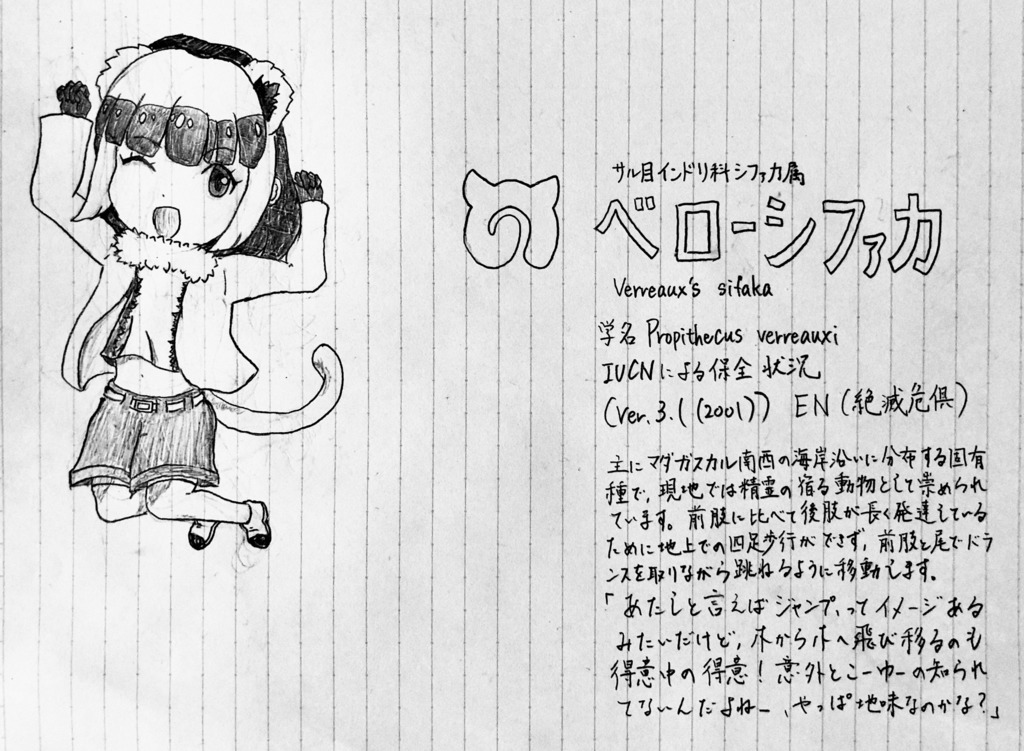 サル目インドリ科シファカ属
ベローシファカ
Verreaux's sifaka
学名 Propithecus verreauxi
IUCNによる保全状況
(Ver.3.1(2001)) EN(絶滅危惧)
主にマダガスカル南西の海岸沿いに分布する固有
種で、現地では精霊の宿る動物として崇められ
ています。前肢に比べて後肢が長く発達している
ために地上での四足歩行ができず、前肢と尾でバラ
ンスを取りながら跳ねるように移動します。
「あたしと言えばジャンプ、ってイメージある
みたいだけど、木から木へ飛び移るのも
得意中の得意！意外とこーゆーの知られ
てないんだよねー、やっぱ地味なのかな？」